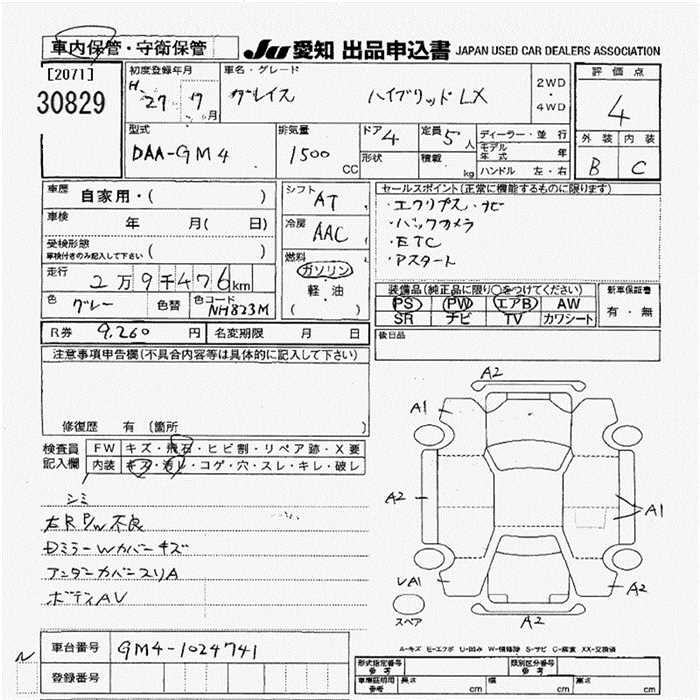 車内保管・守衛保管 JU 愛知 出品申込書 JAPAN USED CAR DEALERS ASSOCIATION
[2071]
30829
初度登録年月 H 27 年 7 月
車名・グレード グレイス ハイブリッド LX
2WD ・ 4WD
評価点
4
外装 内装
B C
型式 DAA-GM4
排気量 1500 CC
ドア 4
形状
定員 5人
積載 kg
ディーラー・並行
モデル年式 年
ハンドル 左・右
車歴 自家用・( )
車検 年 月( 日)
受検形態
車検付きのみ記入して下さい ( )
走行 2万9千476km
色 グレー 色替 色コード NH823M
シフト AT
冷房 AAC
燃料
ガソリン
・
軽・油
( )
セールスポイント(正常に機能するものに限ります)
・エクリプス・ナビ
・バックカメラ
・ETC
・アスタート
装備品(純正品に限り○をつけてください)
PS PW エアB AW
SR ナビ TV カワシート
新車保証書
有・無
後日品
R券 9,260 円 名変期限 月 日
注意事項申告欄(不具合内容等は具体的に記入して下さい)
修復歴 有 (箇所 )
検査員記入欄
FW キズ・飛石・ヒビ割・リペア跡・X要
内装 キズ・汚レ・コゲ・穴・スレ・キレ・破レ
シミ
右R P/W不良
DミラーWカバーキズ
アンダーカバースリA
ボディAV
A2
A1
A2
A1
VA1
A2
スペア
A2
A-キズ E-エクボ U-凹み W-補修跡 S-サビ C-腐食 XX-交換済
車台番号 GM4-1024741
登録番号
形式指定番号 参考
類別区分番号 参考
車庫証明用 参考 長さ cm 幅 cm 高さ cm